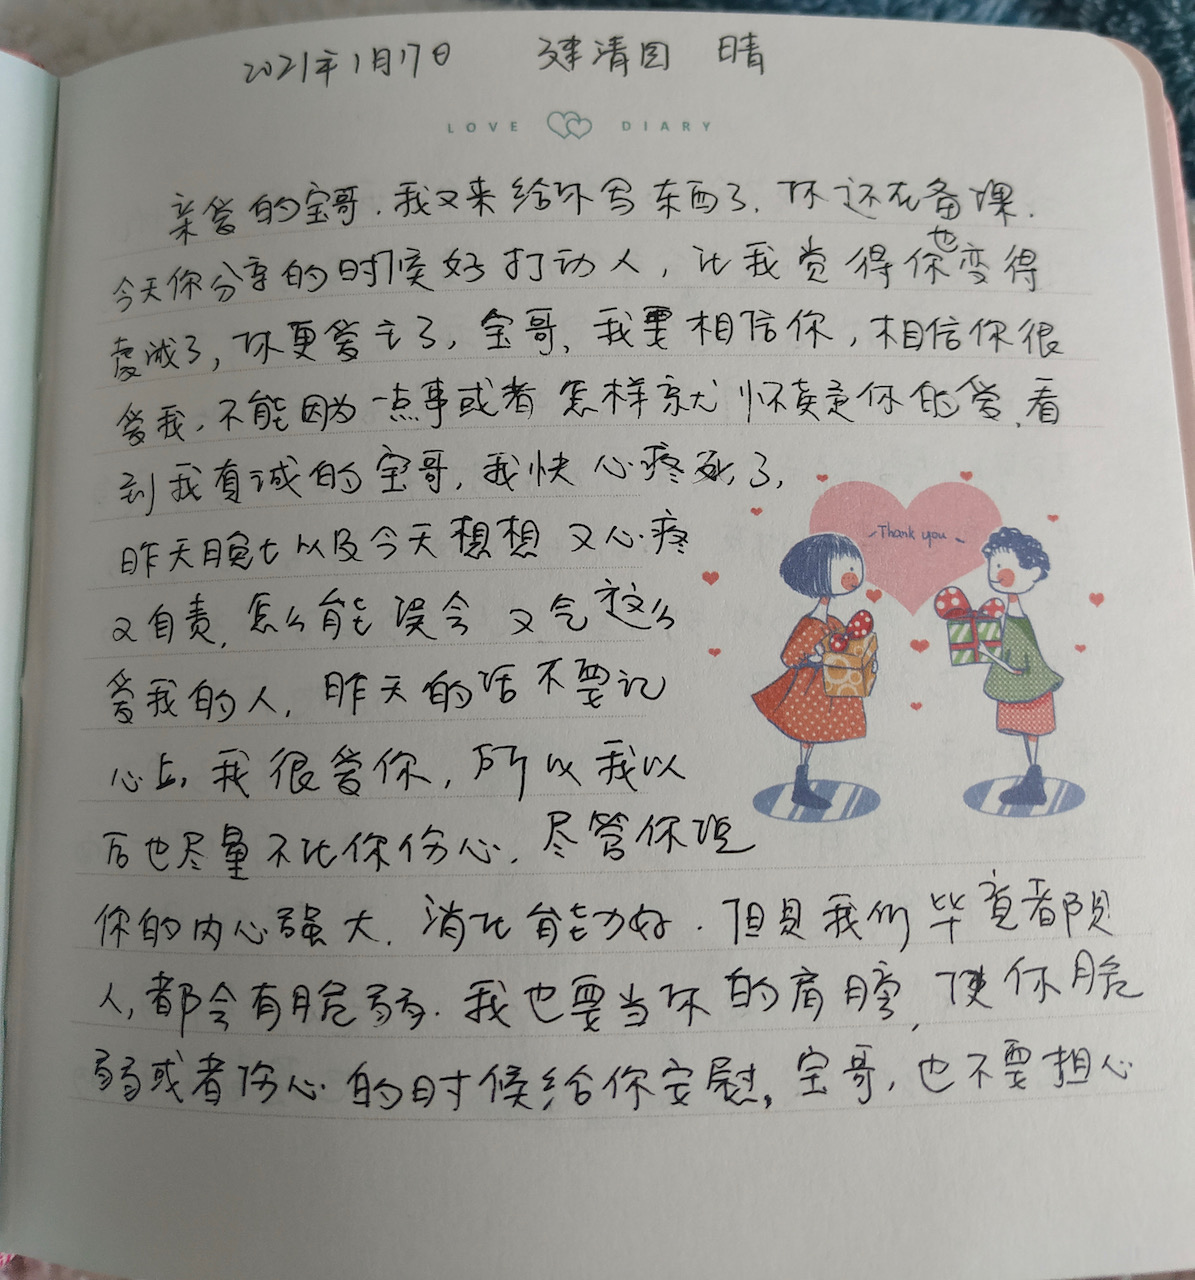 2021年1月17日 建清园 晴
LOVE DIARY
亲爱的宝哥,我又来给你写东西了,你还在备课,
今天你分享的时候好打动人,让我觉得你也变得
虔诚了,你更爱主了,宝哥,我要相信你,相信你很
爱我,不能因为一点事或者怎样就怀疑你的爱,看
到我有诚的宝哥,我快心疼死了,
昨天晚上以及今天想想又心疼
又自责,怎么能误会又气这么
爱我的人,昨天的话不要记
心上,我很爱你,所以我以
后也尽量不让你伤心,尽管你说
你的内心强大,消化能力好,但是我们毕竟都是
人,都会有脆弱,我也要当你的肩膀,使你脆
弱或者伤心的时候给你安慰,宝哥,也不要担心
Thank you